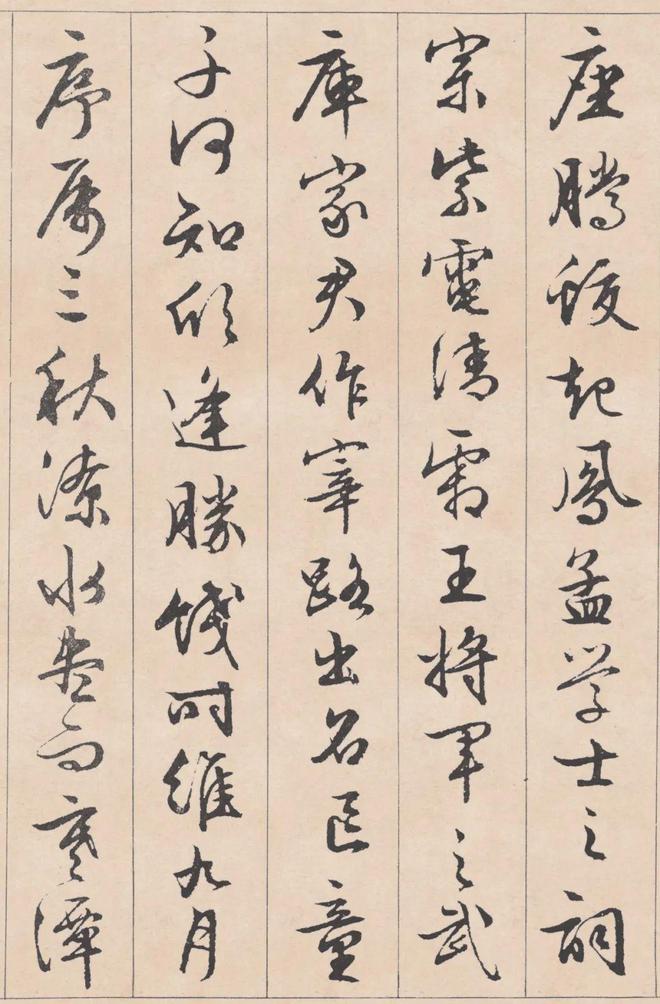 座腾蛟起凤孟学士之词
宗紫電清霜王将军之武
庫家君作宰路出名區童
子何知躬逢勝餞时維九月
序属三秋潦水尽而寒潭